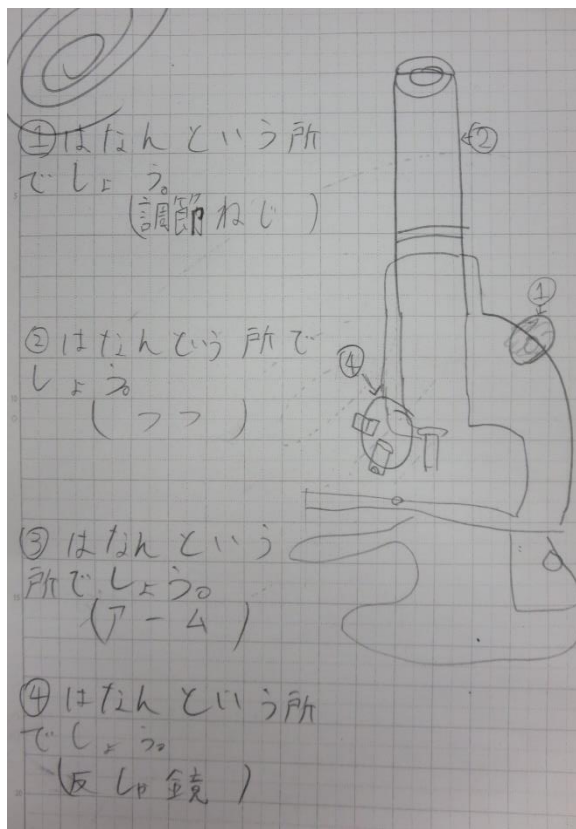 ①はなんという所
でしょう。
(調節ねじ)
②はなんという所で
しょう。
(つつ)
③はなんという
所でしょう。
(アーム)
④はなんという所
でしょう。
(反しゃ鏡)
②
①
④